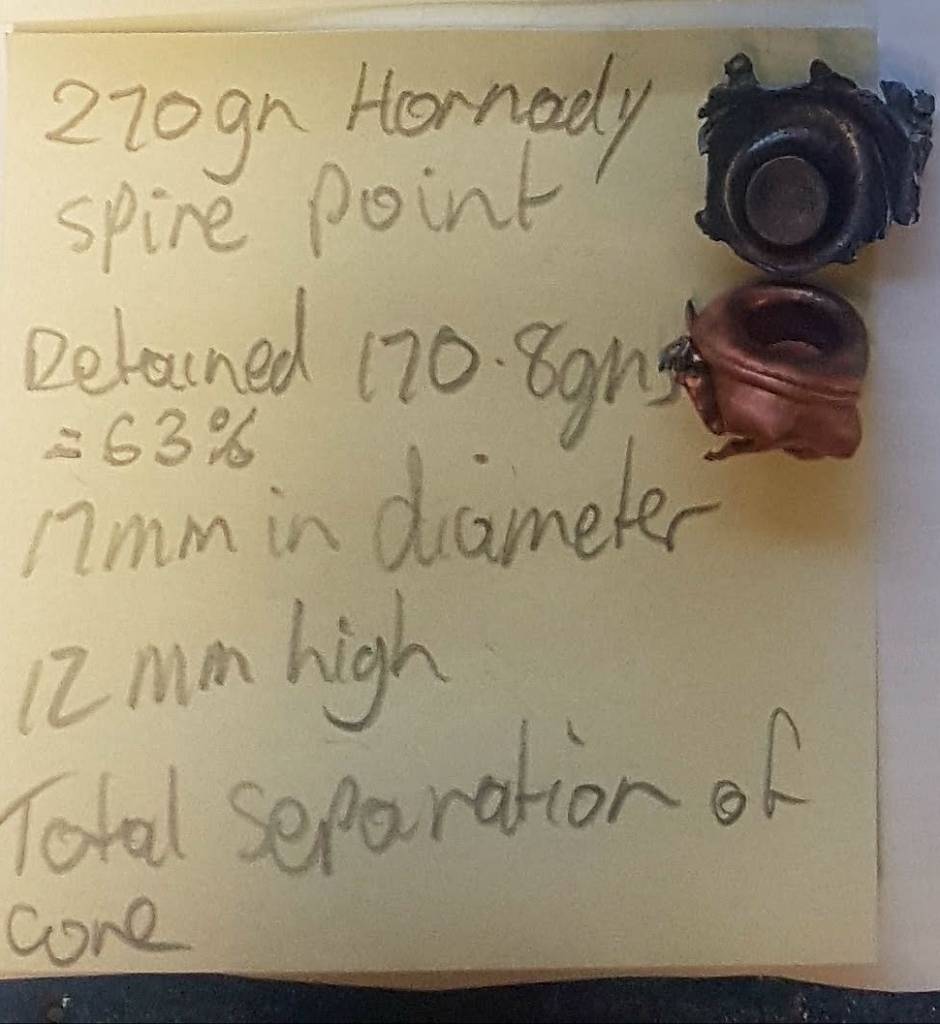 270gn Hornady
spire point
Retained 170.8gns
= 63%
17mm in diameter
12 mm high
Total separation of
core